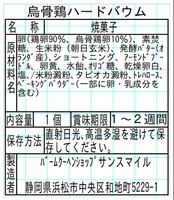 烏骨鶏ハードバウム
名称 焼菓子
原材料名 卵(鶏卵90%、烏骨鶏卵10%)、素焚糖、生米粉(朝日玄米)、発酵バター(オランダ産)、ショートニング、アーモンドプードル、卵黄、水飴、オリゴ糖、乾燥卵白、塩、/米粉澱粉、タピオカ澱粉、トレハロース、ベーキングパウダー(一部に卵・乳成分を含む)
内容量 1個 賞味期限 1~2週間
保存方法 直射日光、高温多湿を避けて保存してください。
製造者 バームクーヘンショップサンスマイル
静岡県浜松市中央区和地町5229-1